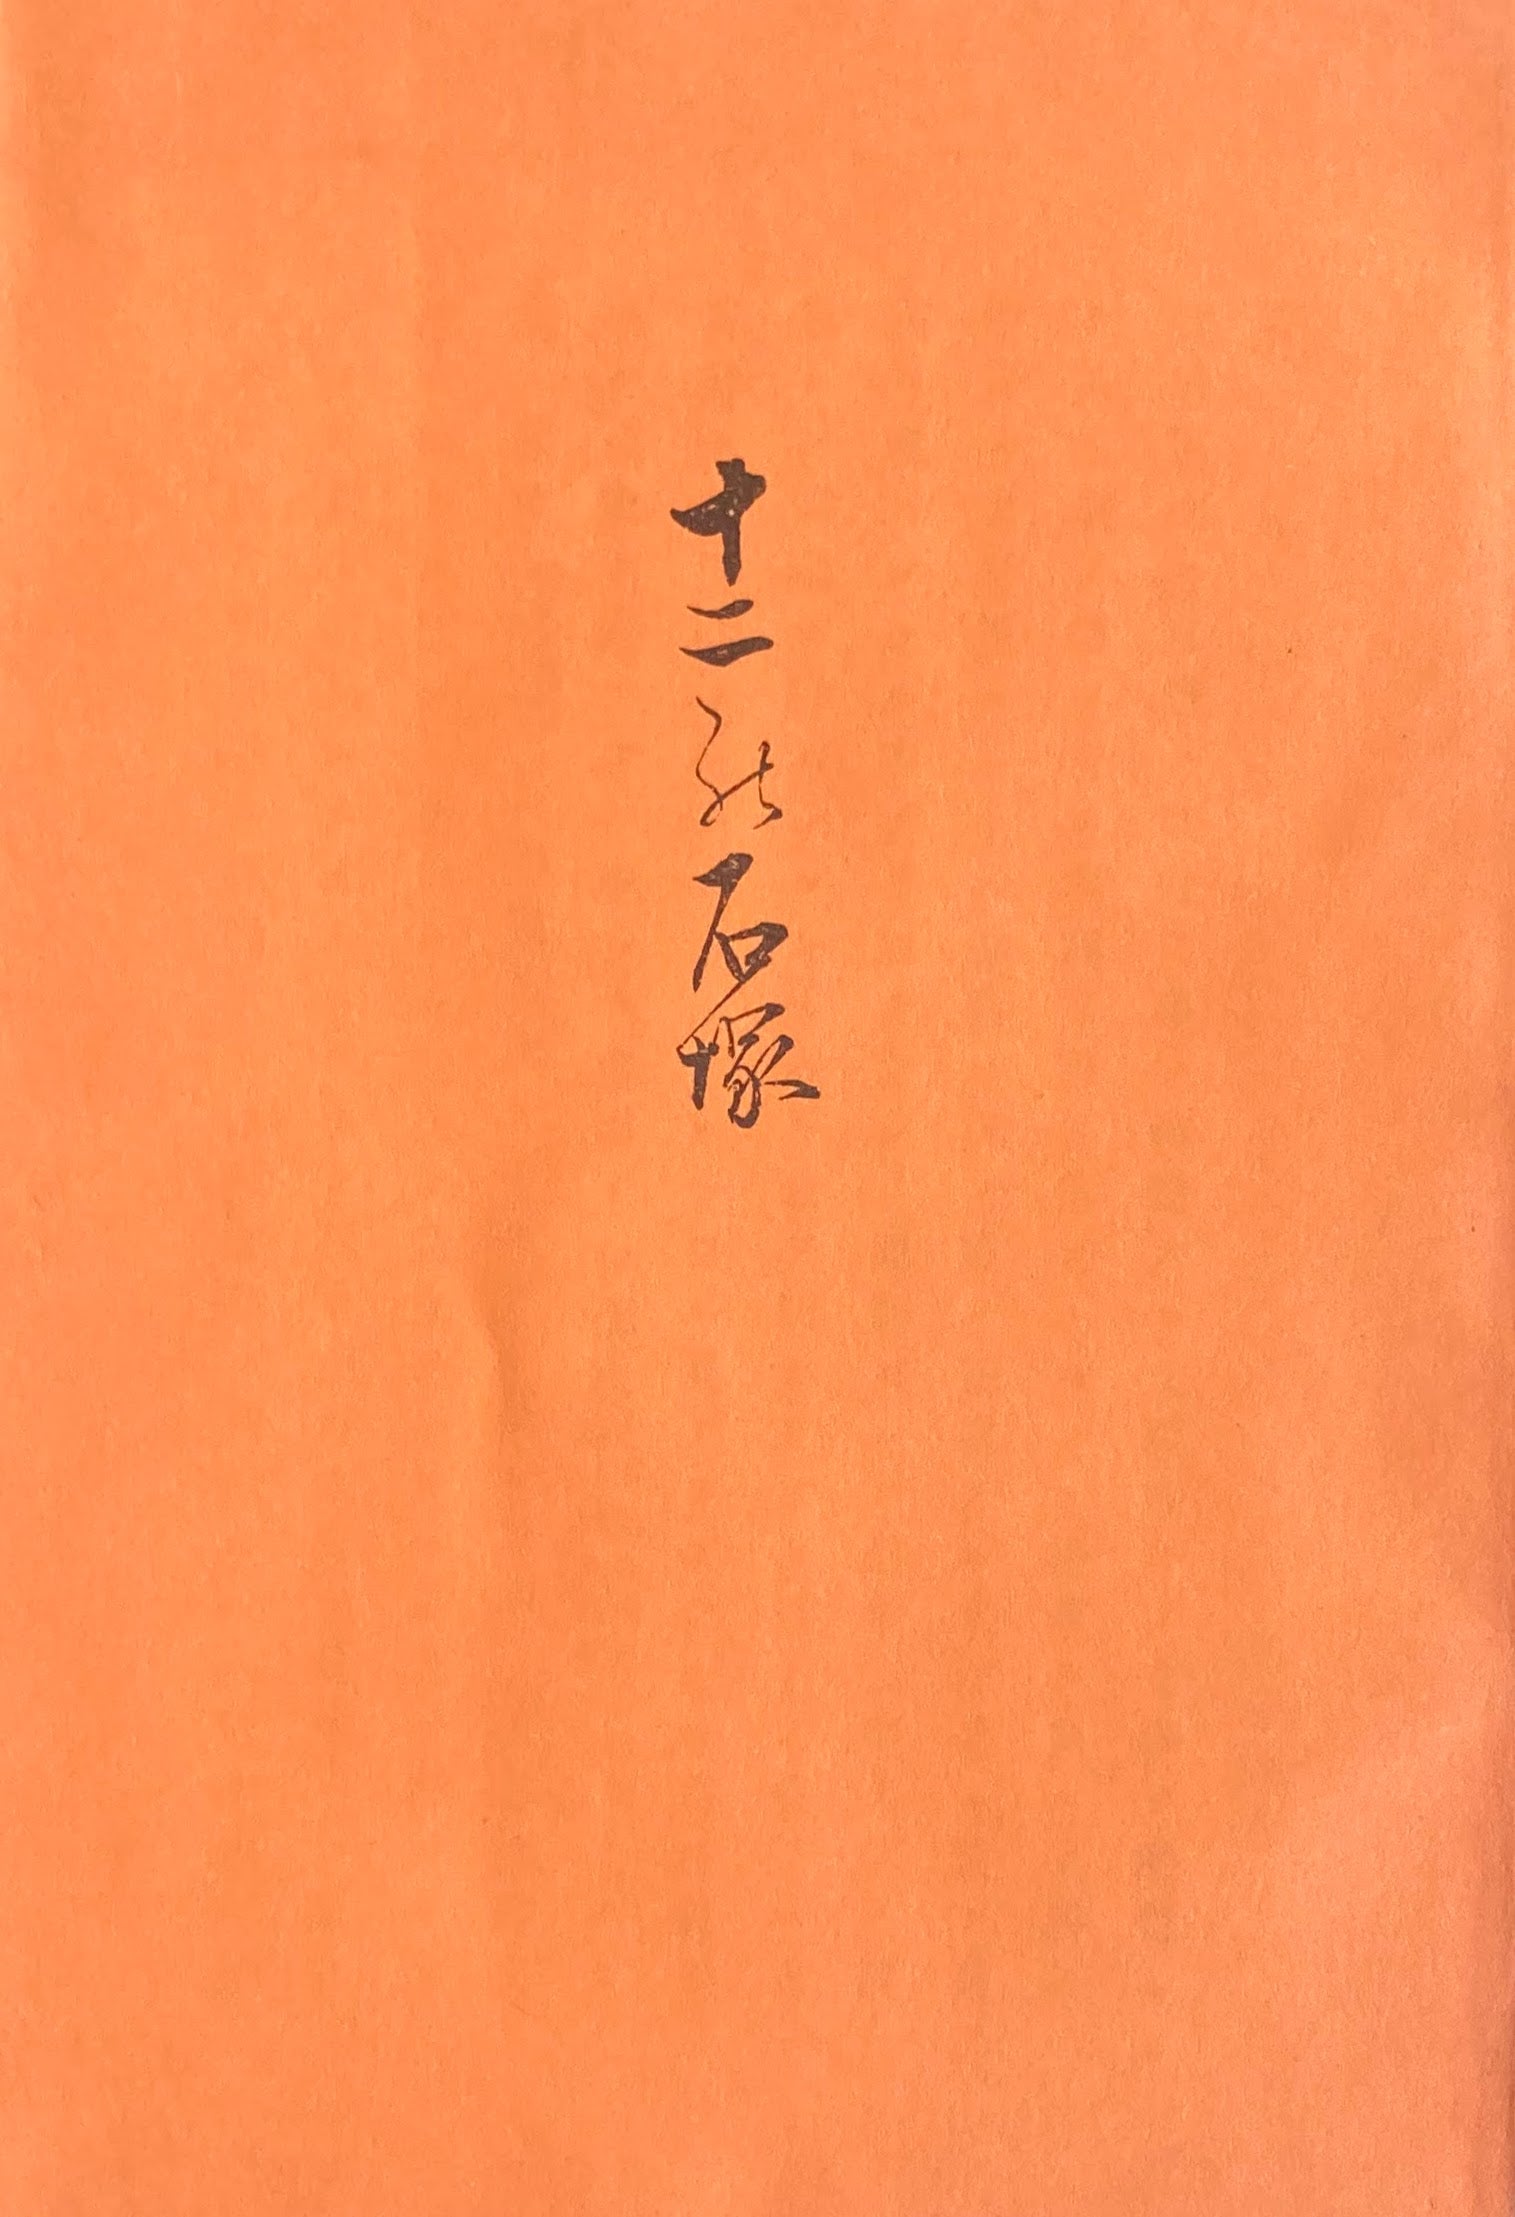 十二の石塚